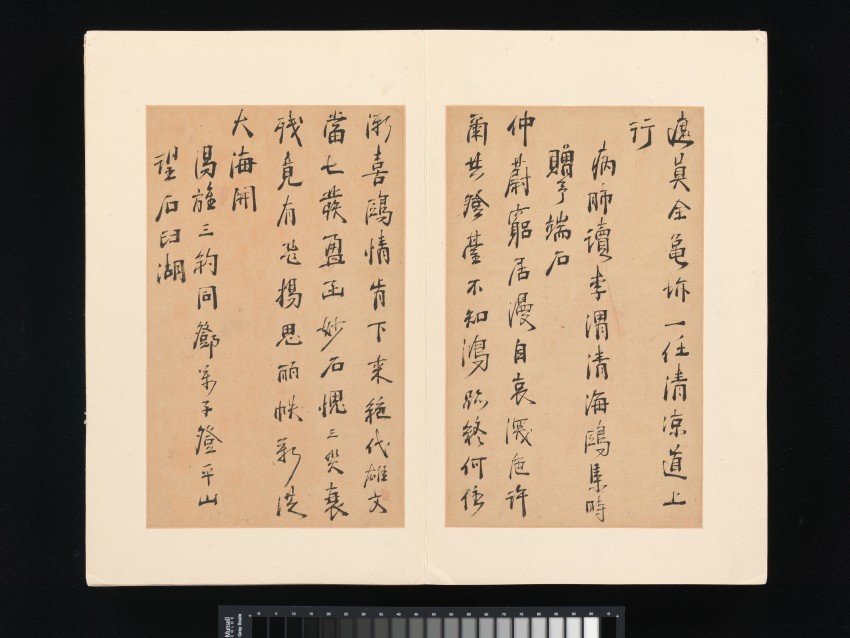 遠莫全黽坼一任清凉道上
行
病肺讀李渭清海鷗集時
贈予端石
仲蔚窮居漫自哀濺危許
爾共登臺不知鴻跡終何住
漸喜鷗情肯下來絕代雄文
當七發盈函妙石愧三災衰
殘竟有老揚思丽帙新洗
大海開
湯旌三約同鄧羊子登平山
望石臼湖